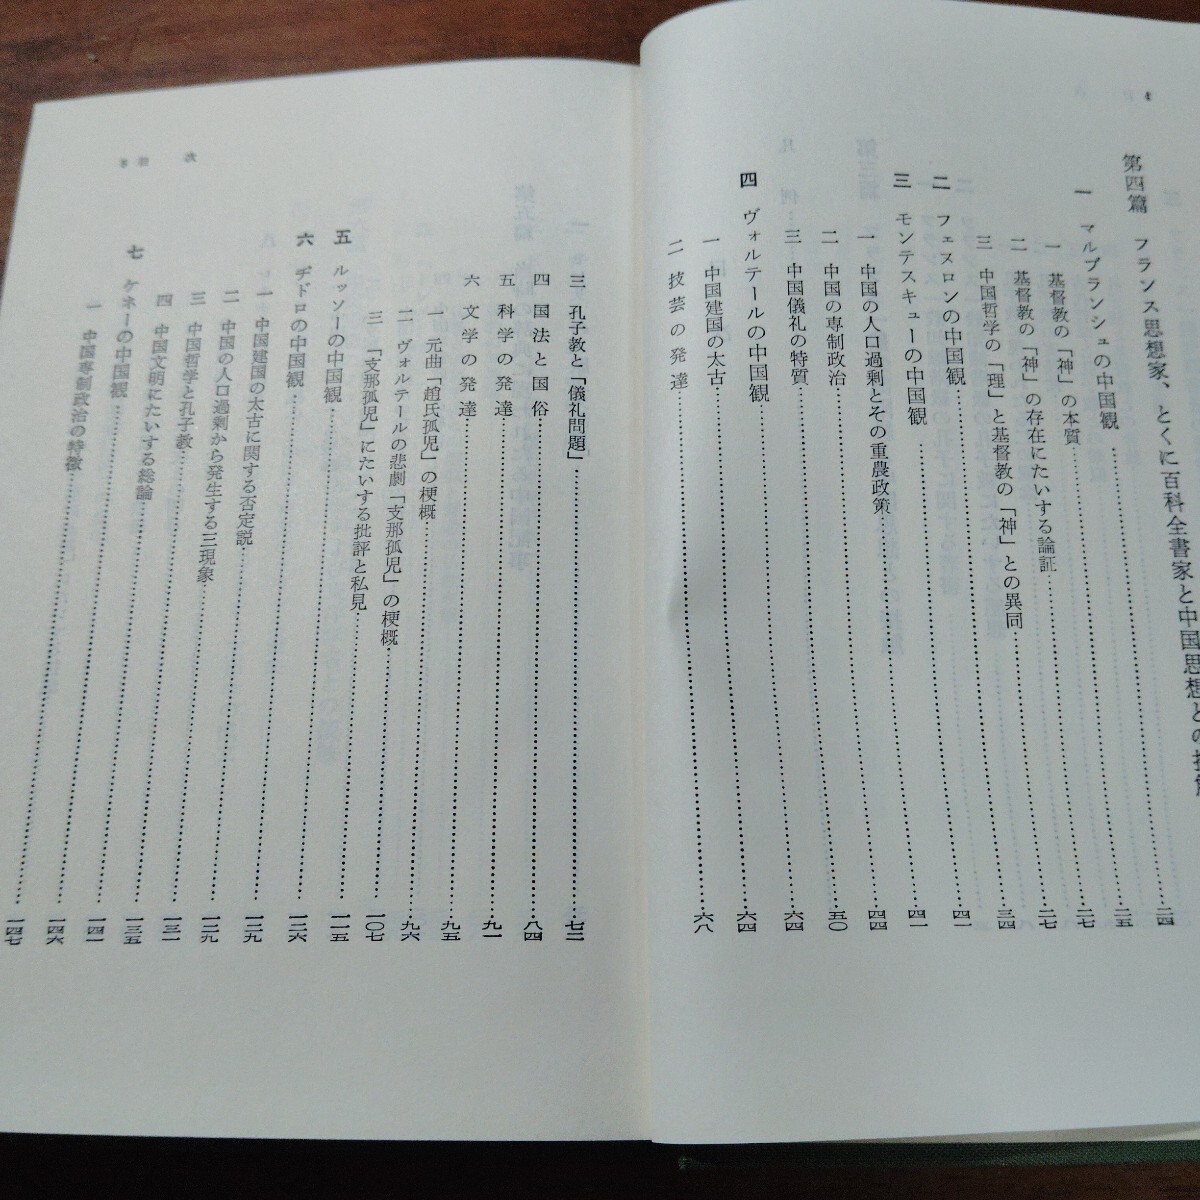 4
第四篇 フランス思想家、とくに百科全書家と中国思想との
一 マルブランシュの中国観……二四
一 基督教の「神」の本質……二五
二 基督教の「神」の存在にたいする論証……二七
三 中国哲学の「理」と基督教の「神」との異同……二七
二 フェヌロンの中国観……三四
三 モンテスキューの中国観……四一
一 中国の人口過剰とその重農政策……四一
二 中国の専制政治……四四
三 中国儀礼の特質……五〇
四 ヴォルテールの中国観……六四
一 中国建国の太古……六四
二 技芸の発達……六八
三 孔子教と「儀礼問題」……七二
四 国法と国俗……八四
五 科学の発達……九一
六 文学の発達……九五
一 元曲「趙氏孤児」の梗概……九六
二 ヴォルテールの悲劇「支那孤児」の梗概……一〇七
三 「支那孤児」にたいする批評と私見……一一五
五 ルッソーの中国観……一二六
六 ヂドロの中国観……一二九
一 中国建国の太古に関する否定説……一二九
二 中国の人口過剰から発生する三現象……一三一
三 中国哲学と孔子教……一三五
四 中国文明にたいする総論……一四一
七 ケネーの中国観……一四六
一 中国専制政治の特徴……一四七